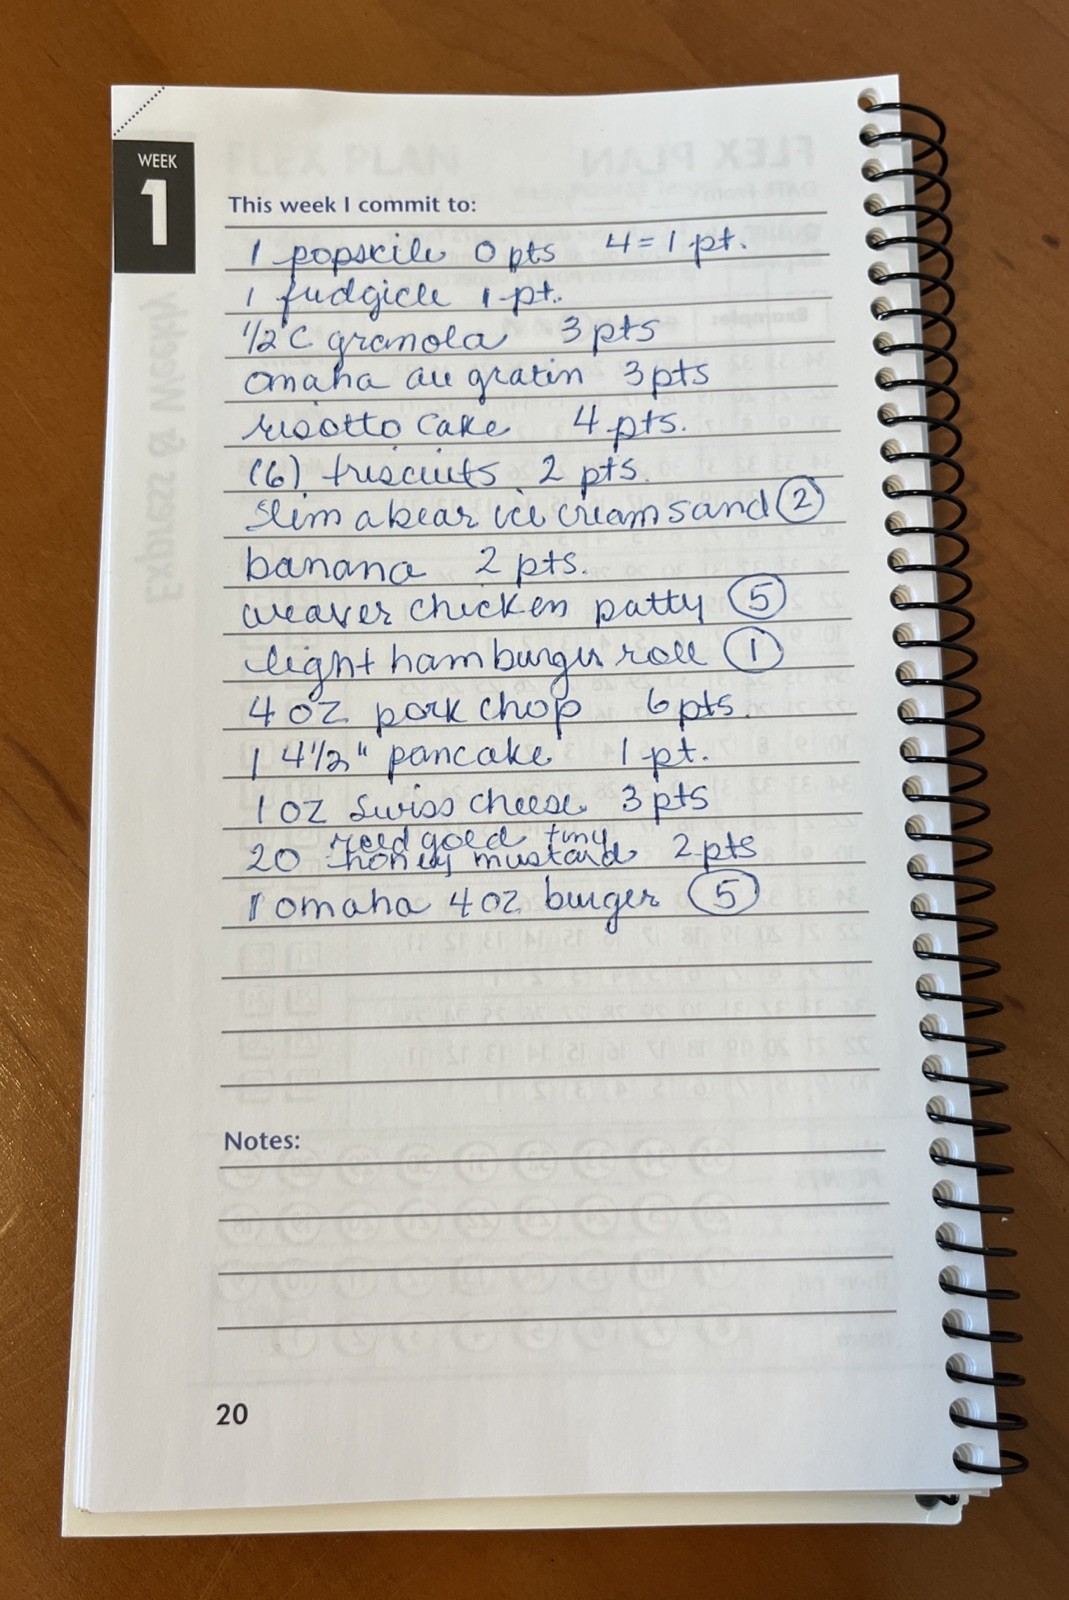 WEEK
1
This week I commit to:
1 popscile 0 pts 4 = 1 pt.
1 fudgicle 1 pt.
1/2 C granola 3 pts
omaha au gratin 3 pts
risotto cake 4 pts.
(6) triscuits 2 pts.
slim a bear ice cream sand 2
banana 2 pts.
weaver chicken patty 5
light hamburger roll 1
4 oz pork chop 6 pts.
1 4 1/2" pancake 1 pt.
1 oz swiss cheese 3 pts
rold gold tiny
20 honey mustard 2 pts
1 omaha 4 oz burger 5
Notes:
20
FLEX PLAN
Express & Weekly